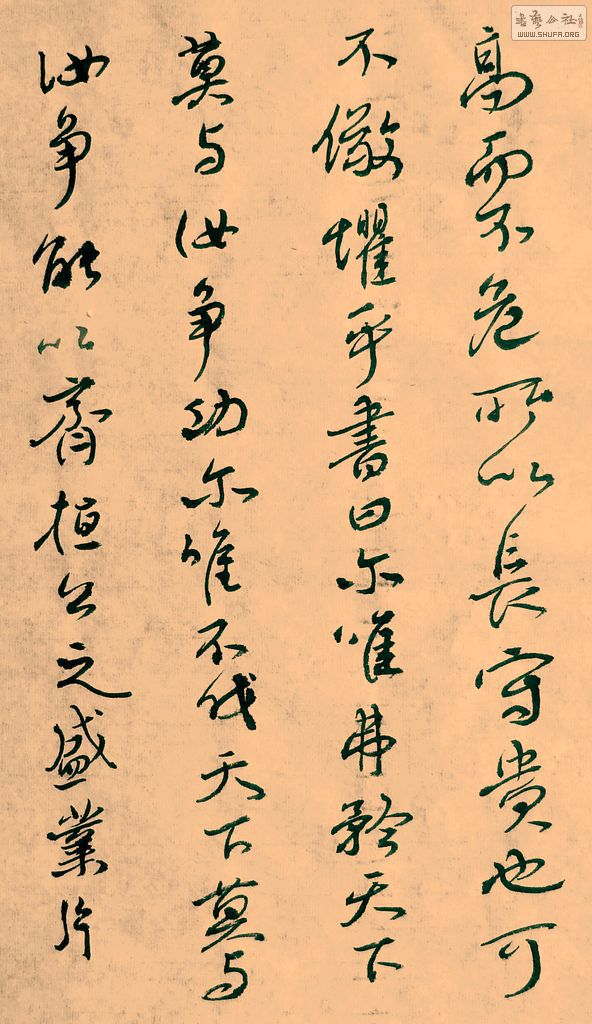 高而不危所以長守貴也可
不儆懼乎書曰尔唯弗矜天下
莫与汝争功尔唯不伐天下莫与
汝争能以齊桓公之盛業片
書藝公社
WWW.SHUFA.ORG